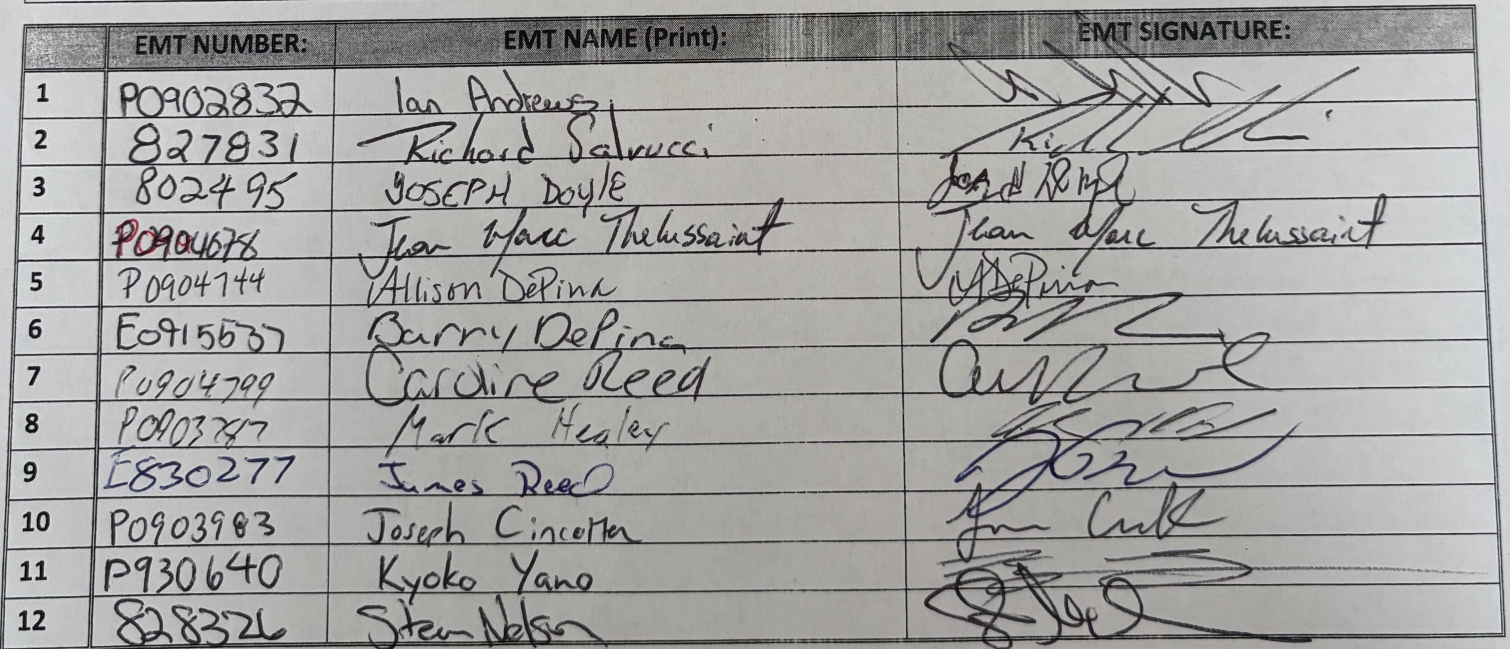 EMT NUMBER: EMT NAME (Print): EMT SIGNATURE:
1 P0902832 Ian Andrews
2 827831 Richard Salvucci
3 802495 JOSEPH DOYLE
4 P0904678 Jean Marc Thelussaint Jean Marc Thelussaint
5 P0904744 Allison DePina ADePina
6 E0915537 Barry DePina
7 P0904799 Caroline Reed
8 P0903787 Mark Healey
9 E830277 James Reed
10 P0903983 Joseph Cincotta
11 P930640 Kyoko Yano
12 828326 Steven Nelson